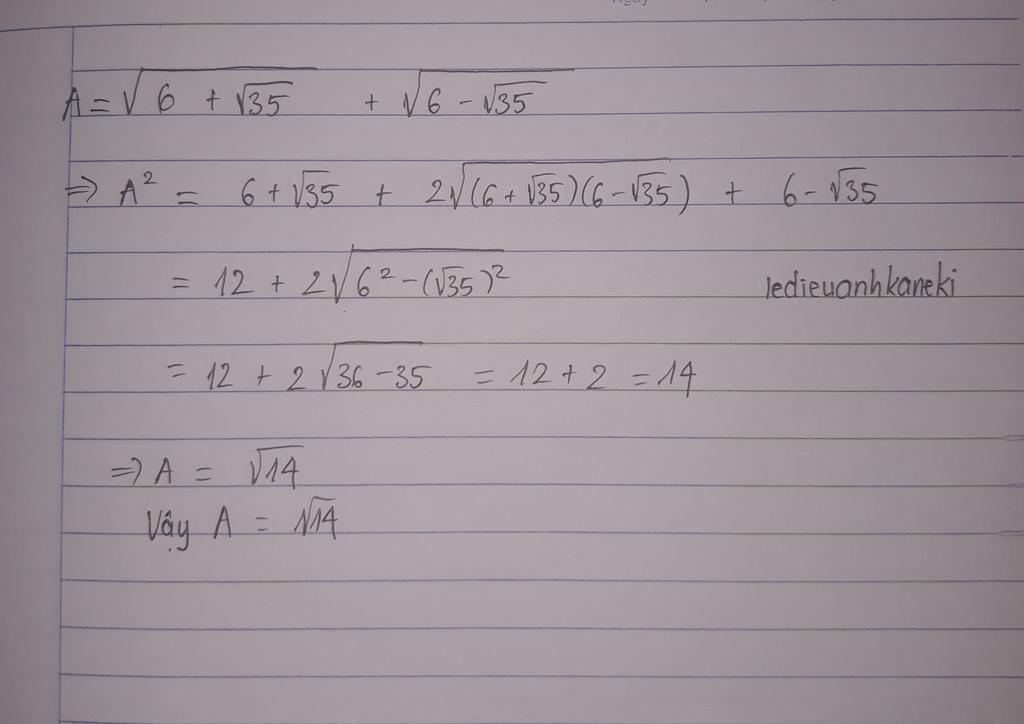 A = √(6 + √35) + √(6 - √35)
⇒ A² = 6 + √35 + 2√((6 + √35)(6 - √35)) + 6 - √35
= 12 + 2√(6² - (√35)²)
ledieuanhkaneki
= 12 + 2√(36 - 35) = 12 + 2 = 14
⇒ A = √14
Vậy A = √14